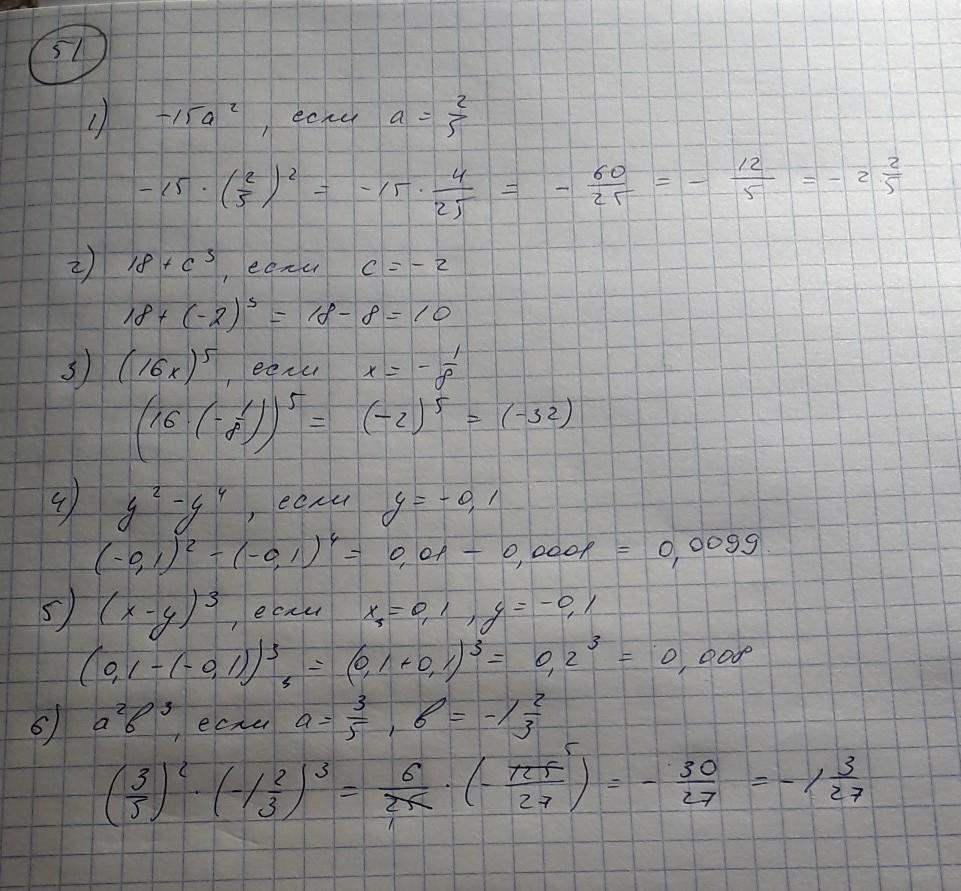 51
1) -15a², если a = 2/5
-15 · (2/5)² = -15 · 4/25 = - 60/25 = - 12/5 = - 2 2/5
2) 18 + c³, если c = -2
18 + (-2)³ = 18 - 8 = 10
3) (16x)⁵, если x = - 1/8
(16 · (-1/8))⁵ = (-2)⁵ = (-32)
4) y² - y⁴, если y = -0,1
(-0,1)² - (-0,1)⁴ = 0,01 - 0,0001 = 0,0099
5) (x - y)³, если x = 0,1, y = -0,1
(0,1 - (-0,1))³ = (0,1 + 0,1)³ = 0,2³ = 0,008
6) a²b³, если a = 3/5, b = -1 2/3
(3/5)² · (-1 2/3)³ = 6/25 1 · (- 125 5/27) = - 30/27 = -1 3/27